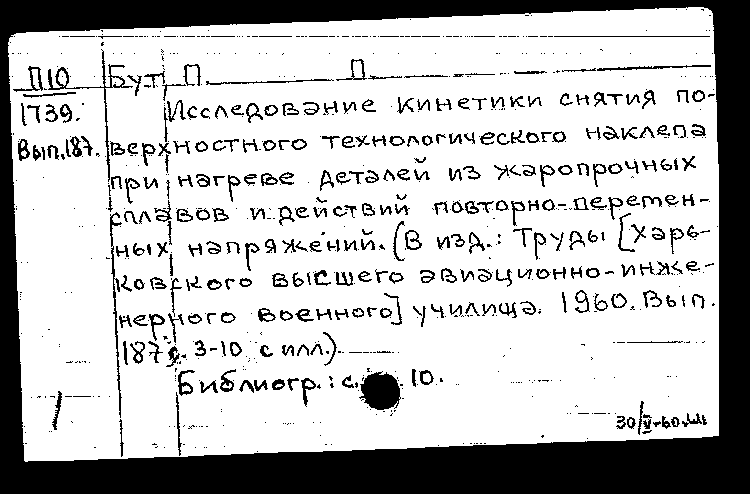 П10 Бут, П. П.
1739. Исследование кинетики снятия по-
Вып.187. верхностного технологического наклепа
при нагреве деталей из жаропрочных
сплавов и действий повторно-перемен-
ных напряжений. (В изд.: Труды [Харь-
ковского высшего авиационно-инже-
нерного военного] училища. 1960. Вып.
187, с. 3-10 с илл.).
Библиогр.: с. 10.
30/V-60.